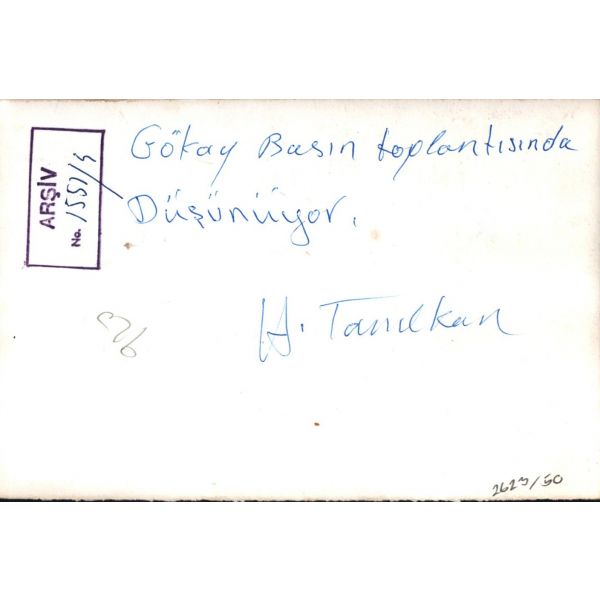 Gökay Basın toplantısında
Düşünüyor.
ARŞİV
No. 1551/5
H. Tanılkan
2623/50